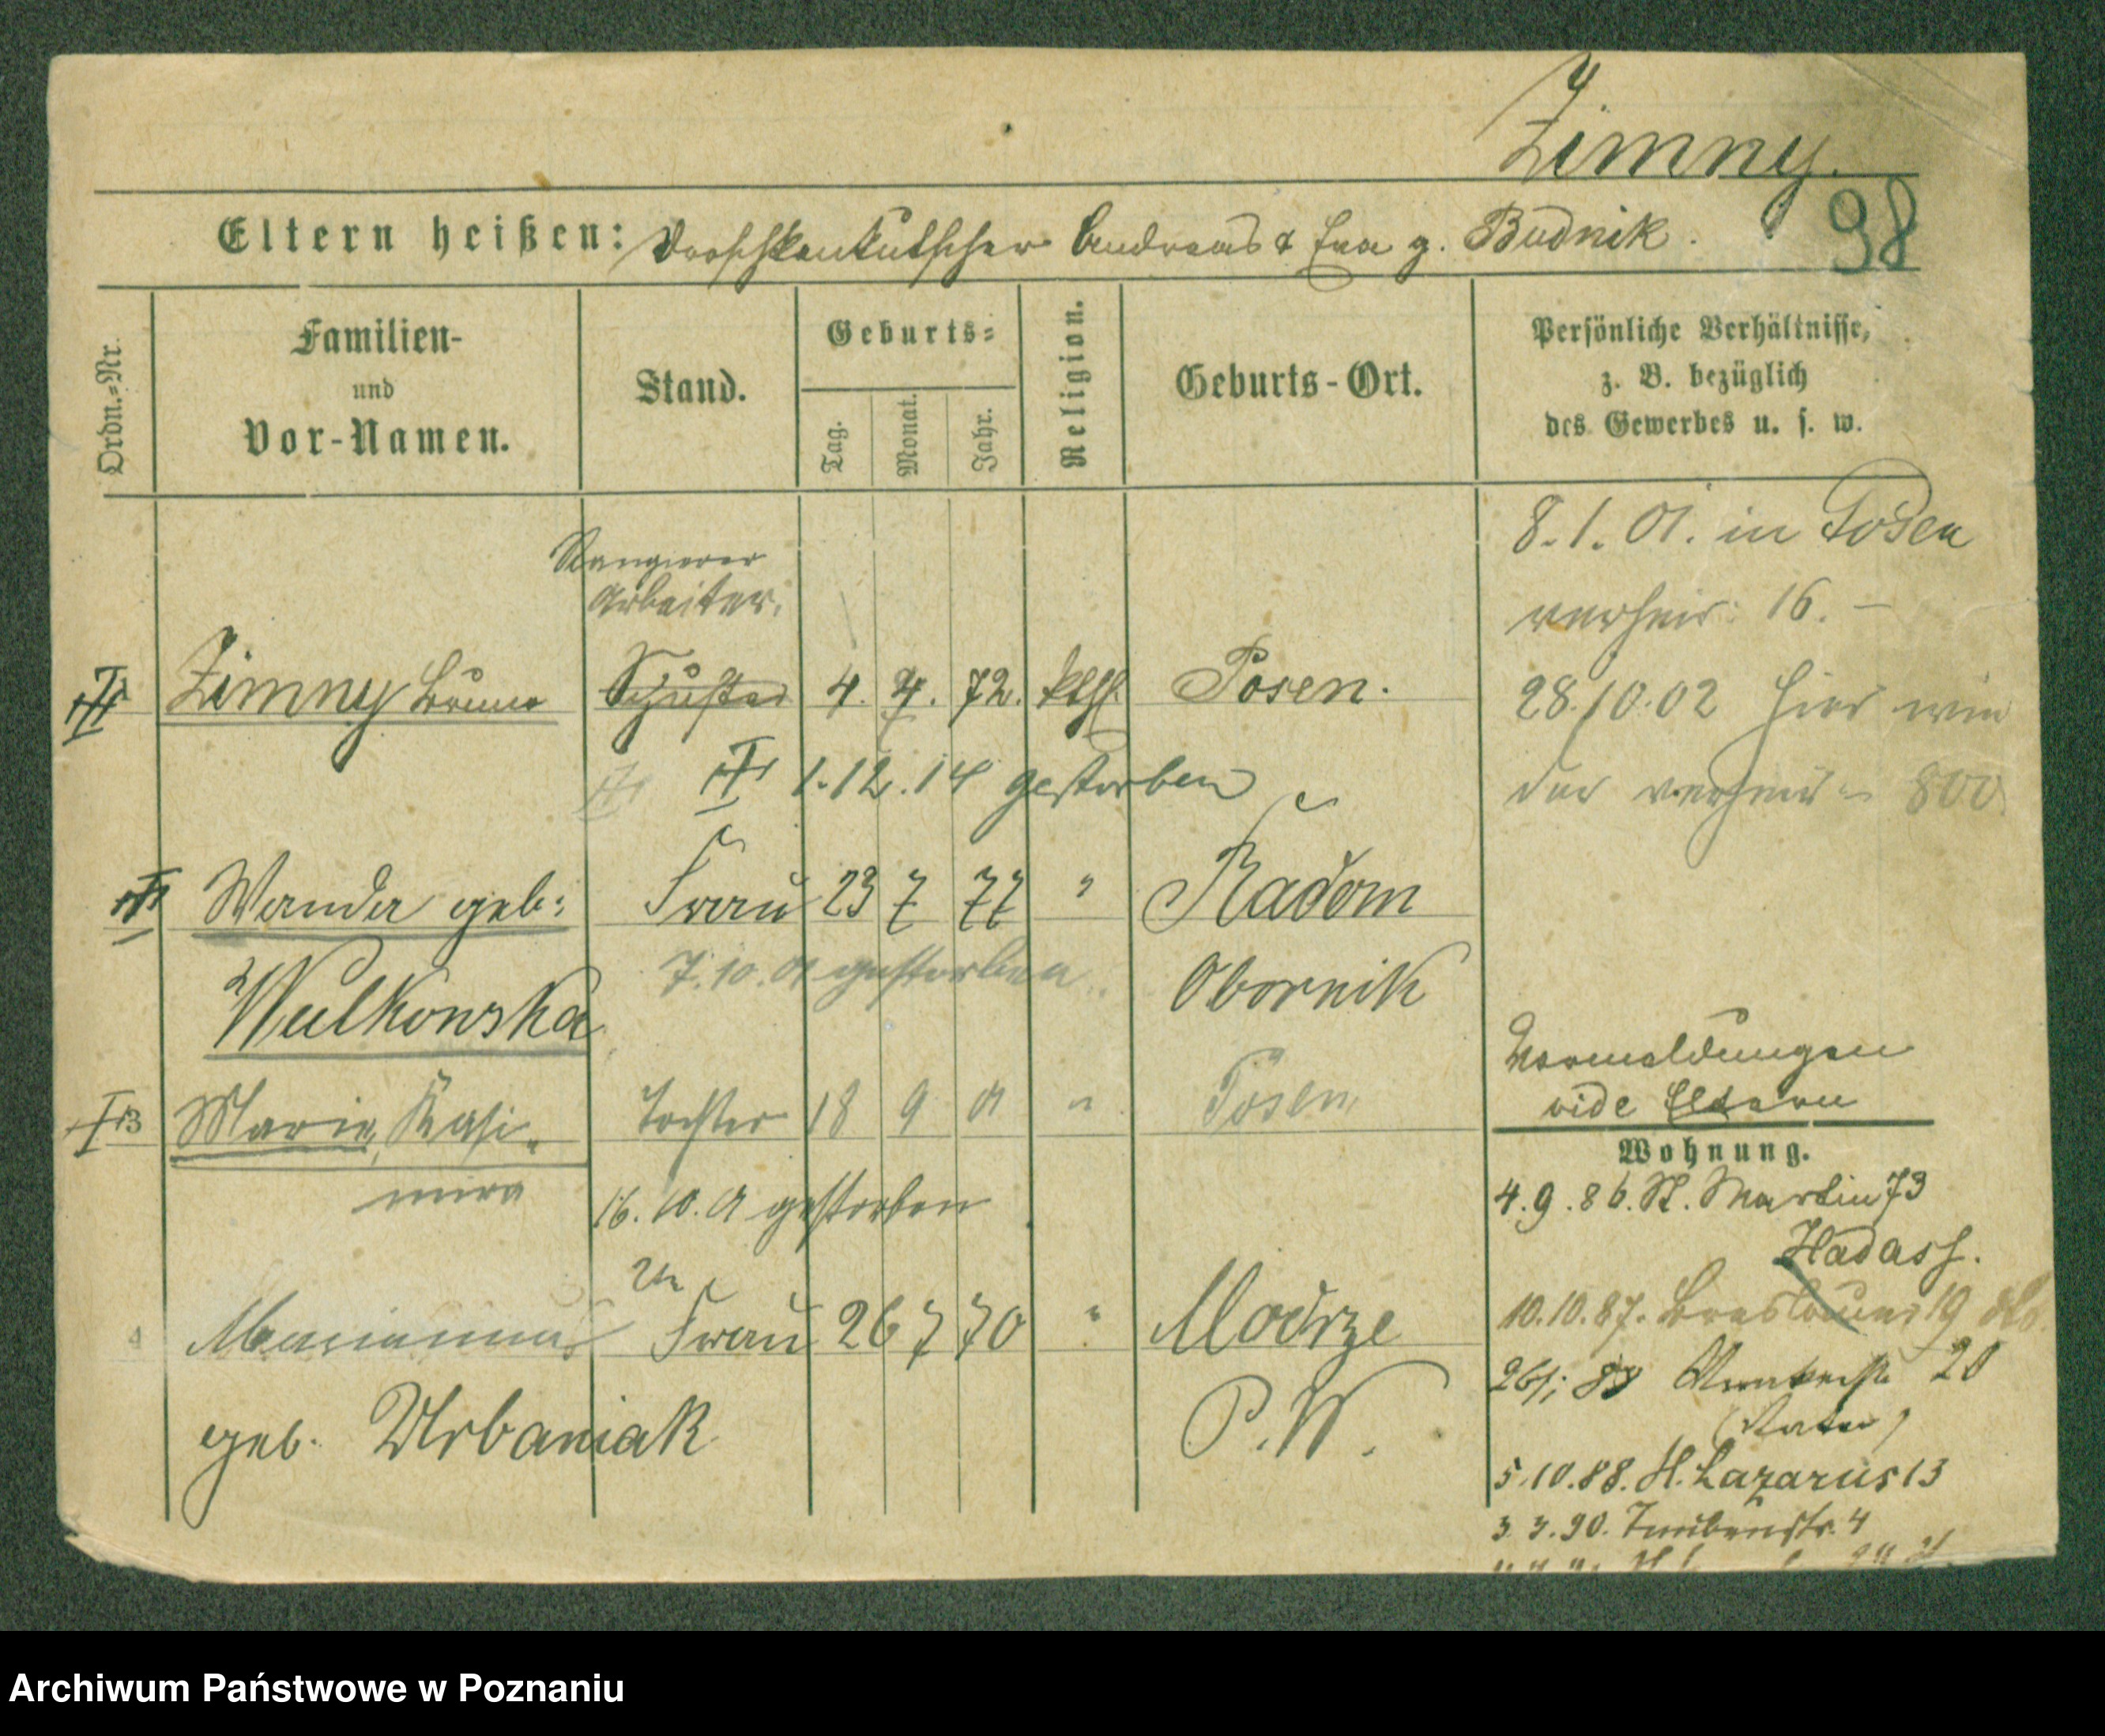 Zimny.
98
Eltern heißen: Droschkenkutscher Andreas & Eva g. Budnik.
Ordn.=Nr.
Familien-
und
Vor-Namen.
Stand.
Geburts=
Tag.
Monat.
Jahr.
Religion.
Geburts-Ort.
Persönliche Verhältnisse,
z. B. bezüglich
des Gewerbes u. s. w.
8.1.01. in Posen
verheir: 16. —
Rangierer
Arbeiter.
Zimny Bruno Schuster 4. 72. kth. Posen.
28/10.02 hier wie
der verheir 800
1.12.14 gestorben
Wanda geb: Frau 23 7 77 " Radom
7.10.01 gestorben
Wulkowska Obornik
Vormeldungen
vide Eltern
Marie, Kasi- Tochter 18 9 01 " Posen
mira
16.10.01 gestorben
Wohnung.
4.9.86. St. Martin 73
Hadass.
10.10.87. Breslauer 19
IIte
Marianna Frau 26 7 70 " Modrze
geb. Urbaniak P.W.
20
(Vater)
5.10.88. St. Lazarus 13
3.3.90. 4
Archiwum Państwowe w Poznaniu